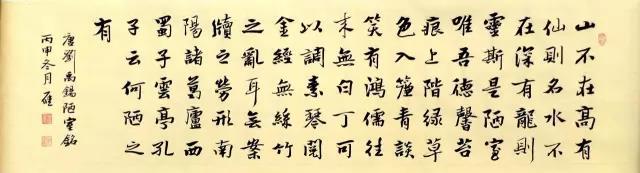 山不在高有
仙則名水不
在深有龍則
靈斯是陋室
唯吾德馨苔
痕上階绿草
色入簾青談
笑有鴻儒往
来無白丁可
以調素琴閱
金經無絲竹
之亂耳无案
牘之勞形南
陽諸葛廬西
蜀子雲亭孔
子云何陋之
有
唐劉禹錫陋室銘
丙申冬月